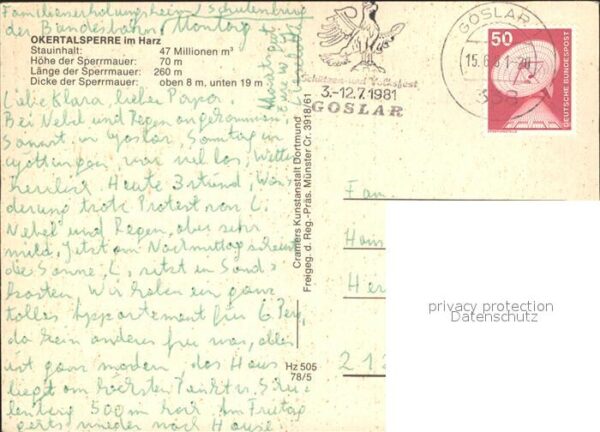 Familienerholungsheim Schulenburg
der Bundesbahn, Montag
OKERTALSPERRE im Harz
Stauinhalt: 47 Millionen m³
Höhe der Sperrmauer: 70 m
Länge der Sperrmauer: 260 m
Dicke der Sperrmauer: oben 8 m, unten 19 m
Liebe Klara, lieber Papa.
Bei Nebel und Regen angekommen.
in Goslar, Sonntag in
Göttingen war viel los, Wetter
herrlich. Heute 3 stünd, Wan-
derung trotz Protest von C.
Nebel und Regen, aber sehr
mild, jetzt am Nachmittag scheint
die Sonne, C. sitzt im Sand-
kasten. Wir haben ein ganz
tolles Appartement für 6 Per,
da kein anderes frei war, alles
ist ganz modern, das Haus
liegt am höchsten Punkt v. Schu-
lenberg 500 m hoch. Am Freitag
gehts wieder nach Hause
Cramers Kunstanstalt Dortmund
Freigeg. d. Reg.-Präs. Münster Nr. 3918/61
Hz 505
78/5
Schützen- und Volksfest
3.-12.7.1981
GOSLAR
GOSLAR
15.6.81-20
338
50
DEUTSCHE BUNDESPOST
Fam.
Hans
Her
212
privacy protection
Datenschutz